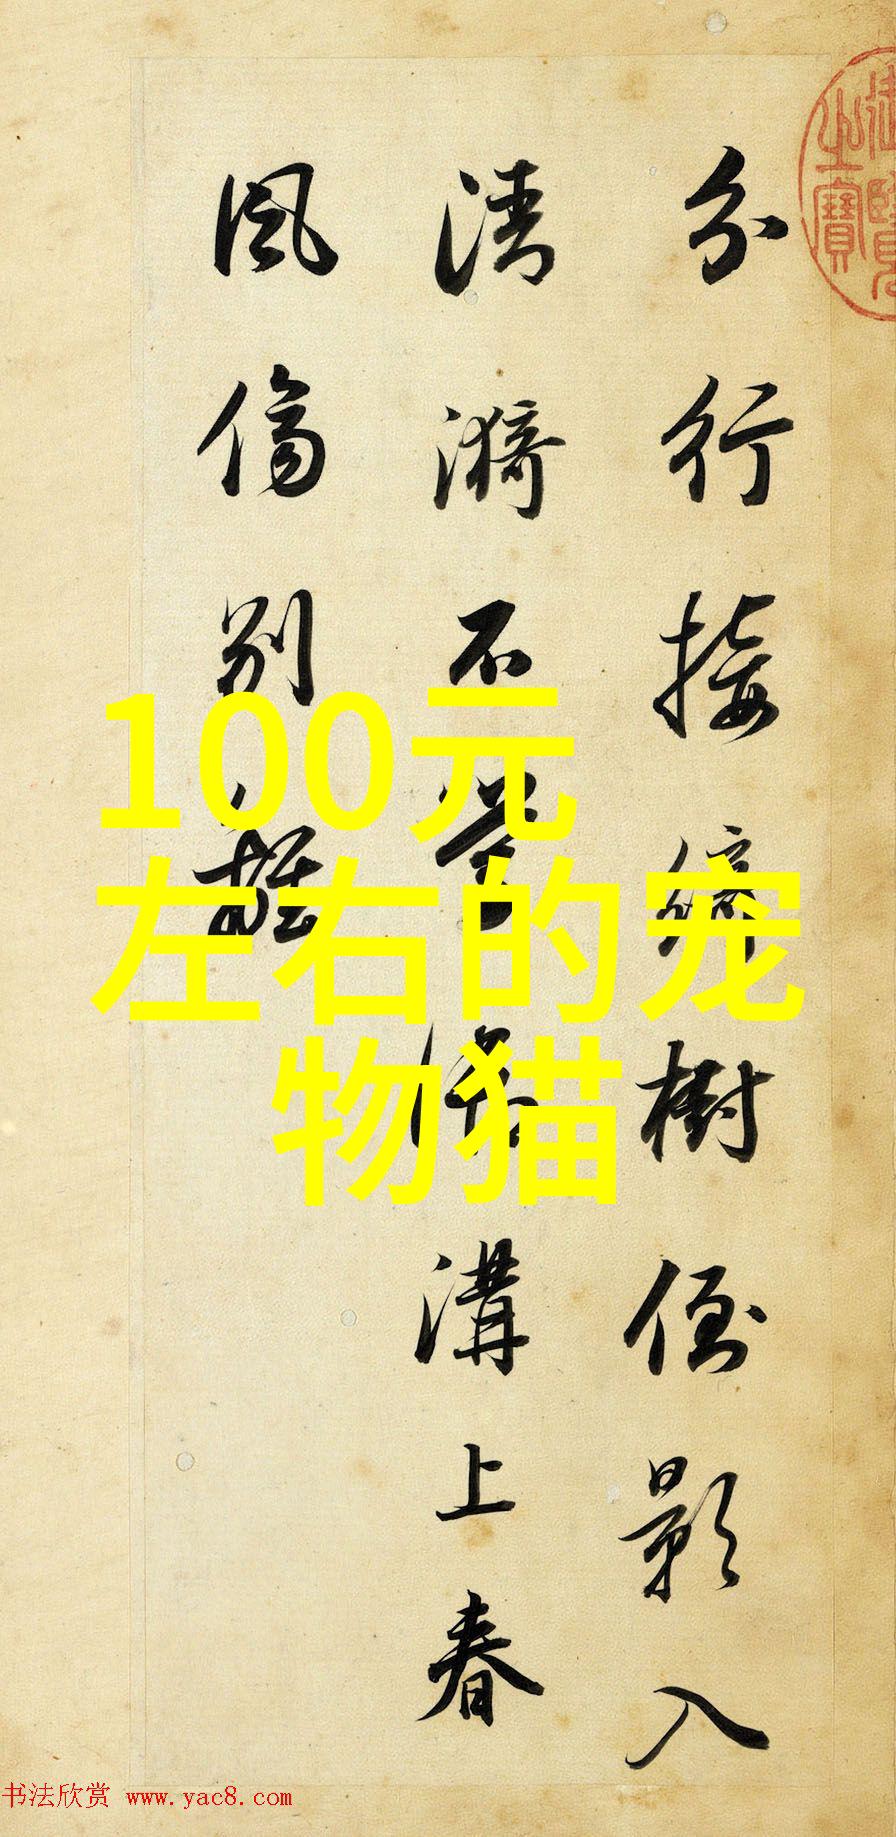 分行接綺樹倒影入
清漪不學御溝上春
風傷別離
100元
左右的宠
物猫
御覽
之寶
书法欣赏 www.yac8.com